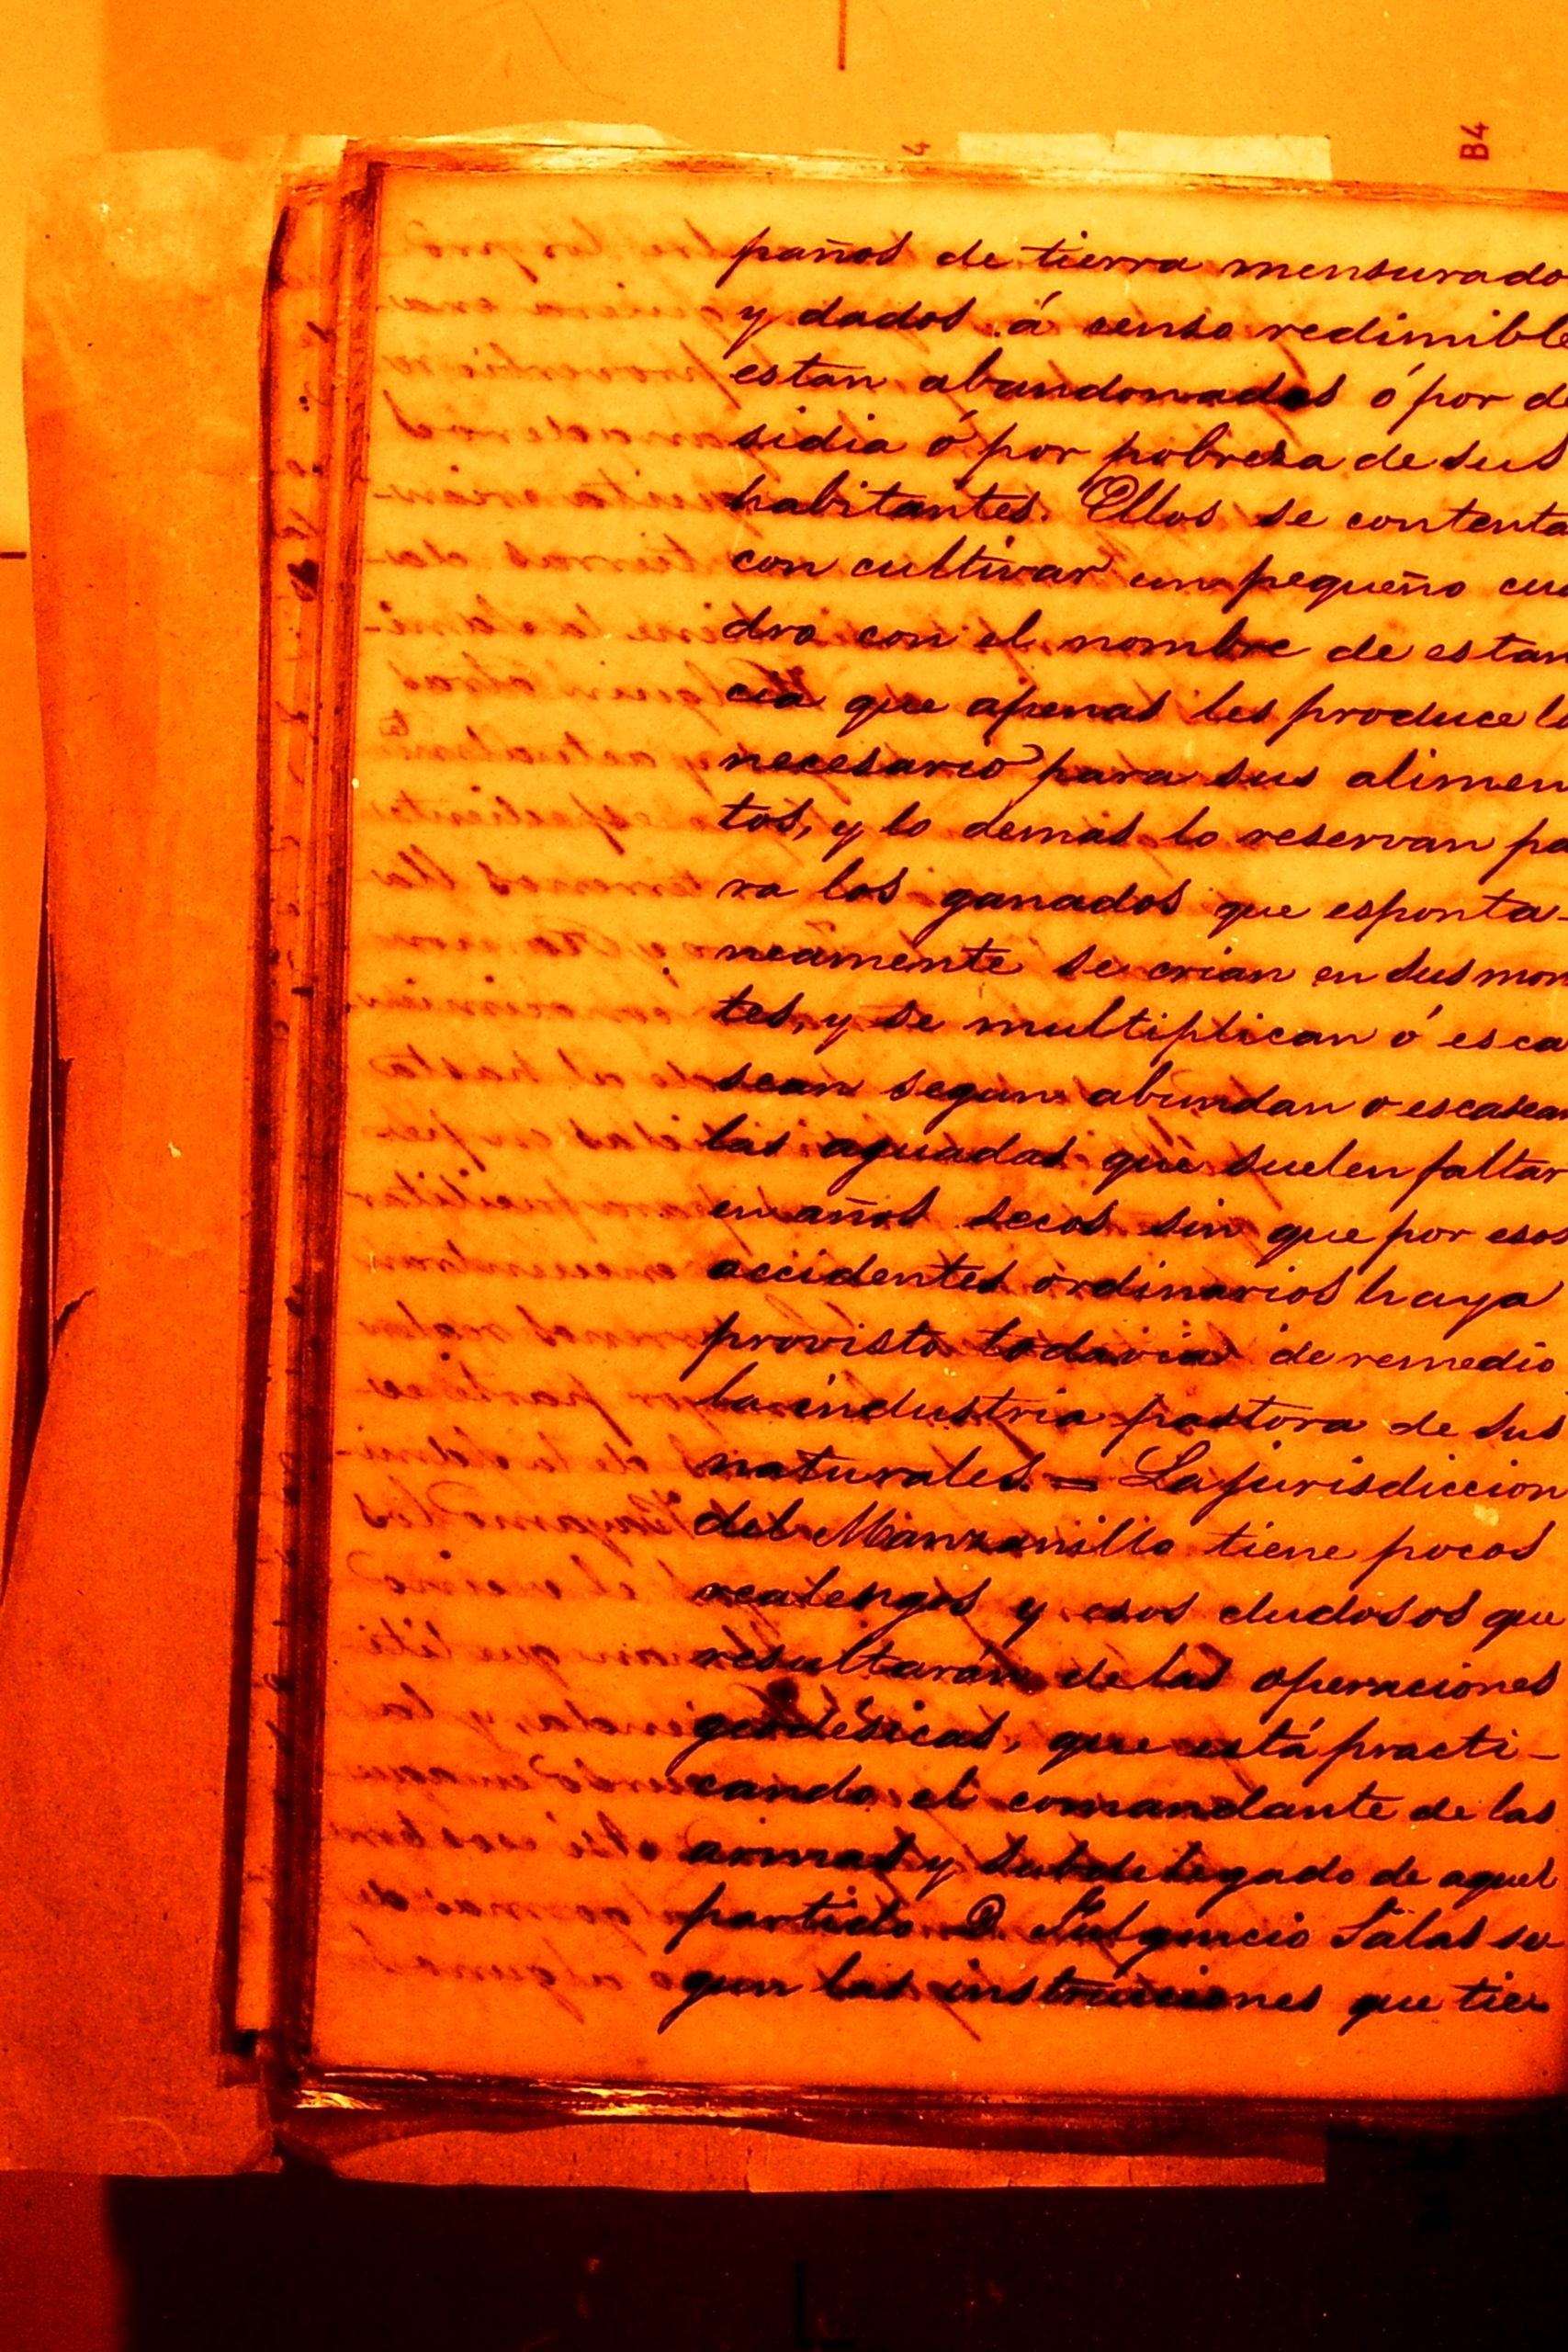 4
B4
paños de tierra mensurado
y dados á censo redimible
estan abandonados ó por de
sidia ó por pobreza de sus
habitantes. Ellos se contenta
con cultivar un pequeño cua
dro con el nombre de estan
cia que apenas les produce lo
necesario para sus alimen
tos, y lo demas lo reservan pa
ra los ganados que esponta-
neamente se crian en sus mon
tes, y se multiplican ó esca
sean segun abundan o escasean
las aguadas que suelen faltar
en años secos sin que por esos
accidentes ordinarios haya
provisto todavia de remedio
la industria pastora de sus
naturales. = La jurisdiccion
del Manzanillo tiene pocos
realengos y esos dudosos que
resultarán de las operaciones
geodésicas, que está practi-
cando el comandante de las
armas y subdelegado de aquel
partido D. Fulgencio Salas se
gun las instrucciones que tie